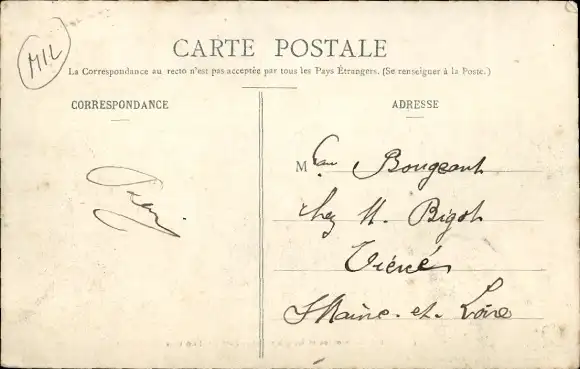 MIL
CARTE POSTALE
La Correspondance au recto n'est pas acceptée par tous les Pays Étrangers. (Se renseigner à la Poste.)
CORRESPONDANCE
ADRESSE
M Bougeant
chez M. Bigot
Maine-et-Loire